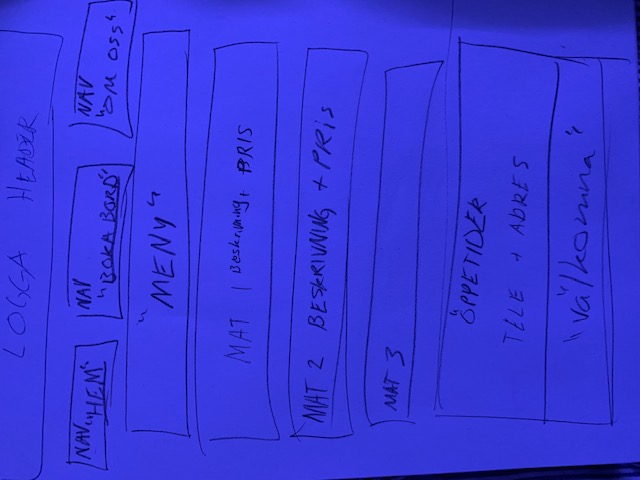 LOGGA HEADER
NAV "HEM"
NAV
"BOKA BORD"
NAV
"OM OSS"
"MENY"
MAT 1 Beskrivning + PRIS
MAT 2 BESKRIVNING + PRIS
MAT 3
"ÖPPETIDER
TELE + ADRES
"välkomna"